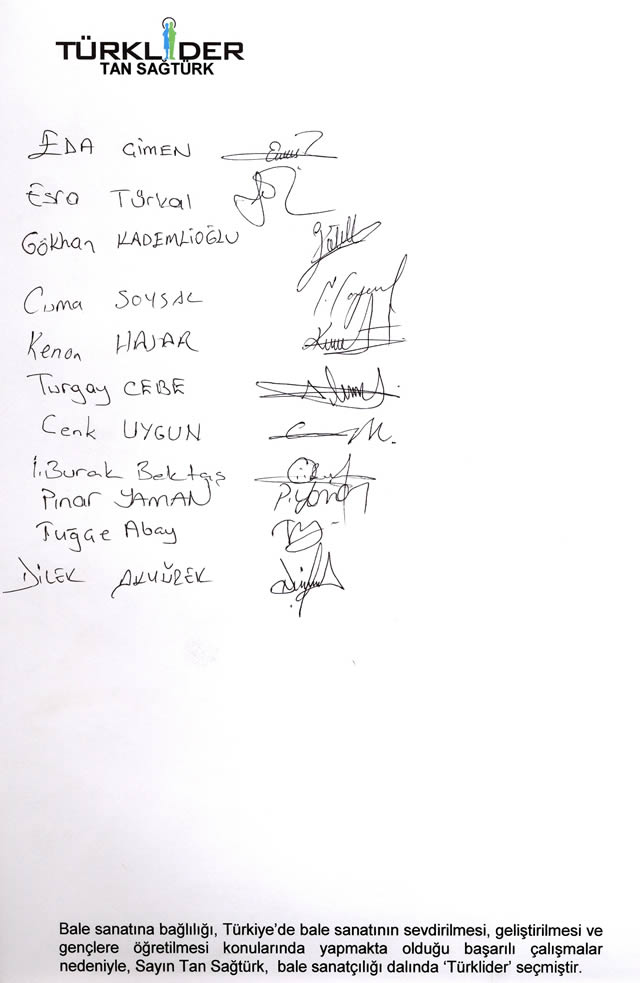 TÜRKLİDER
TAN SAĞTÜRK
EDA GİMEN
Esra Türkal
Gökhan KADEMLİOĞLU
Cuma SOYSAL
Kenan HAJAR
Turgay CEBE
Cenk UYGUN
İ.Burak Bektaş
Pınar YAMAN
Tuğçe Abay
DİLEK
Bale sanatına bağlılığı, Türkiye'de bale sanatının sevdirilmesi, geliştirilmesi ve
gençlere öğretilmesi konularında yapmakta olduğu başarılı çalışmalar
nedeniyle, Sayın Tan Sağtürk, bale sanatçılığı dalında 'Türklider' seçmiştir.